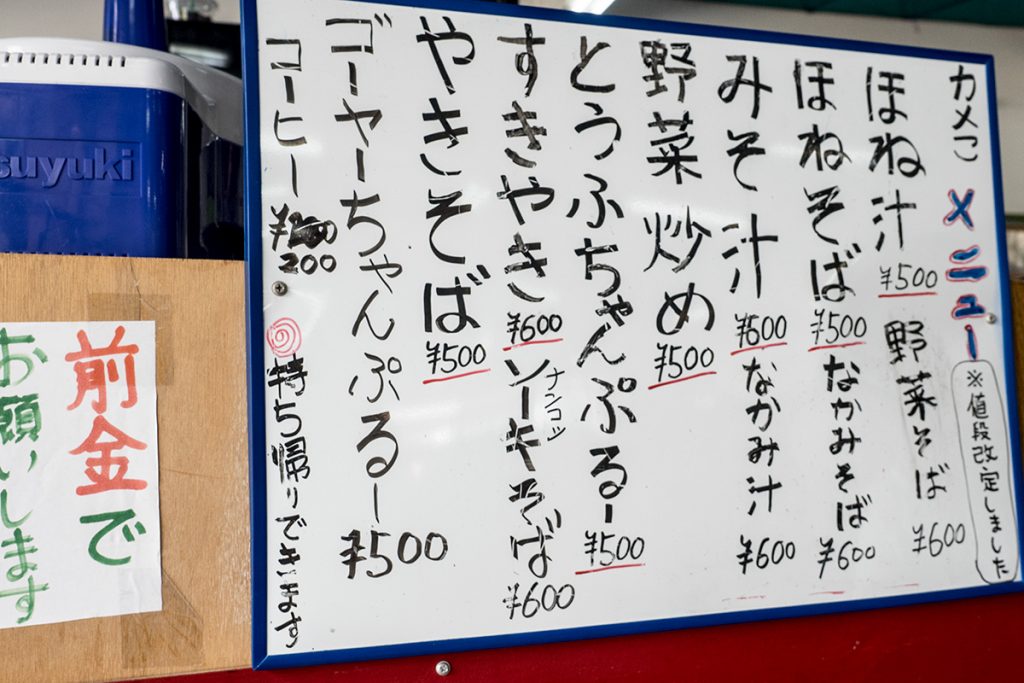 カメこ メニュー
※値段改定しました
ほね汁 ¥500 野菜そば ¥600
ほねそば ¥500 なかみそば ¥600
みそ汁 ¥500 なかみ汁 ¥600
野菜炒め ¥500
とうふちゃんぷるー ¥500
すきやき ¥600 ソーキそば ¥600
ナンコツ
やきそば ¥500
ゴーヤーちゃんぷるー ¥500
コーヒー 200
持ち帰りできます
前金で
お願いします
suyuki